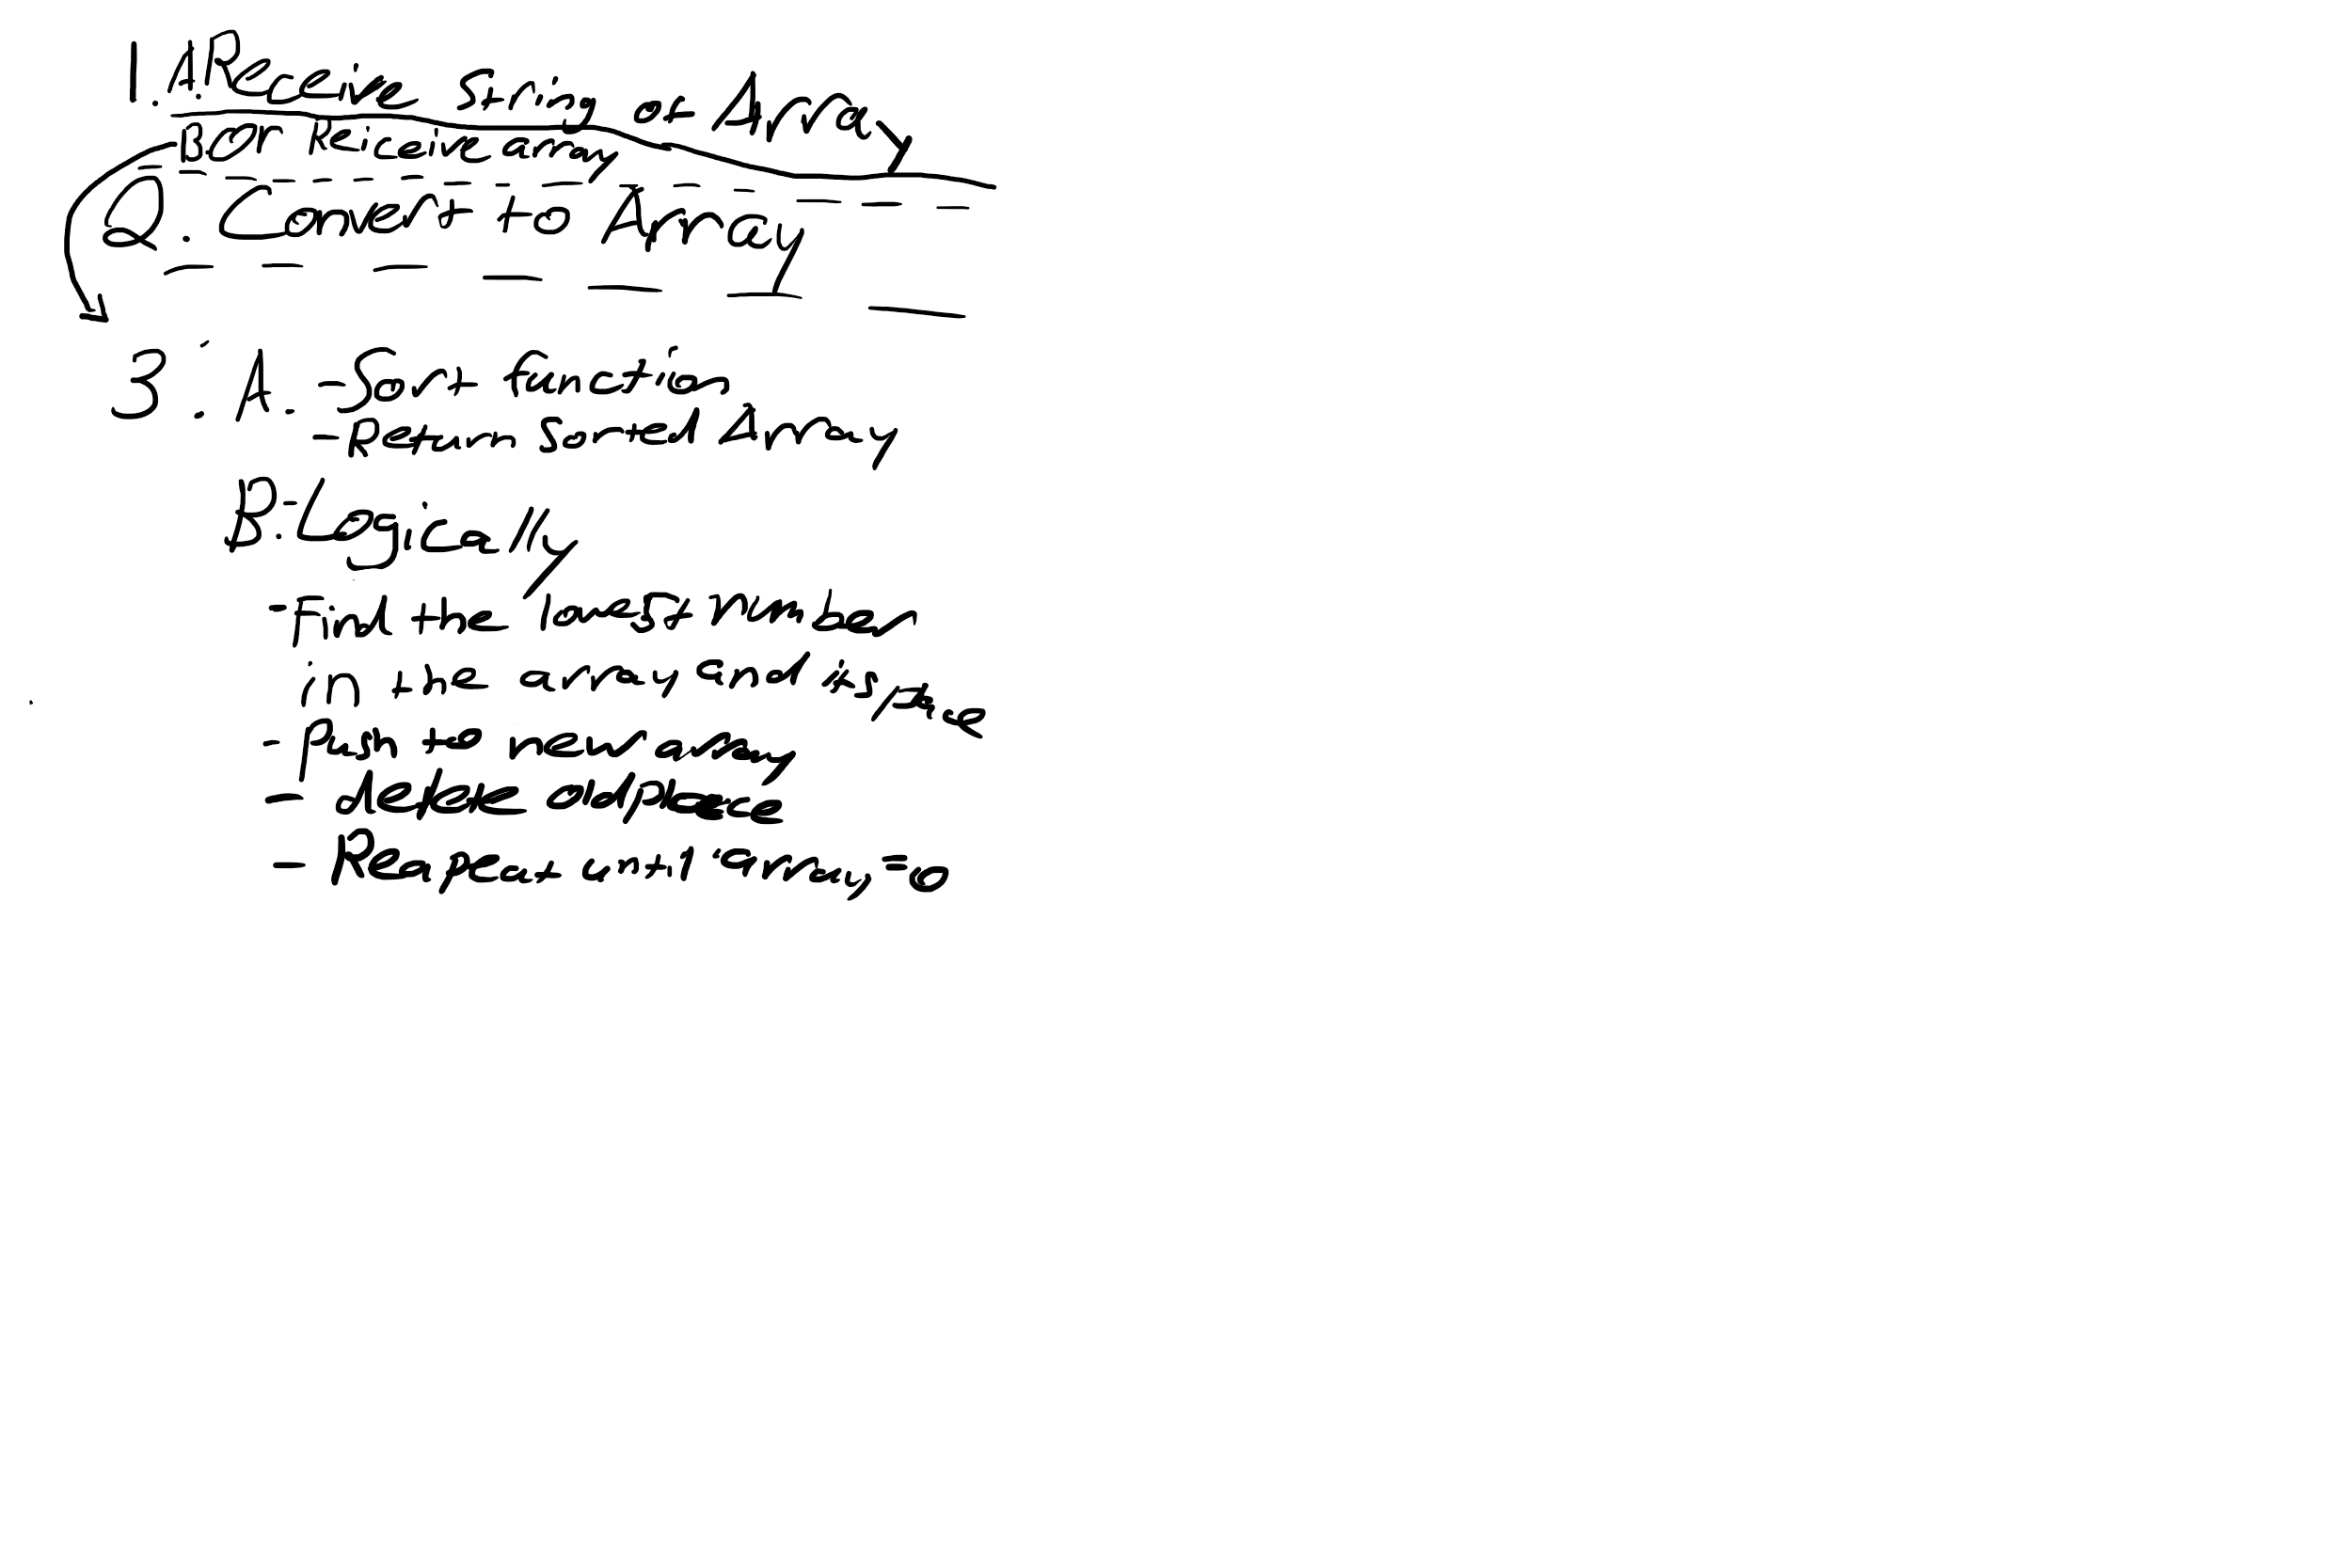 1. A. Receive string of Array
B. or Recieve array
2. Convert to Array
3. A. - Sort function
- Return sorted Array
B. - Logically
- Find the lowest number
in the array and its place
- Push to new array
- delete old place
- Reapeat until array = 0